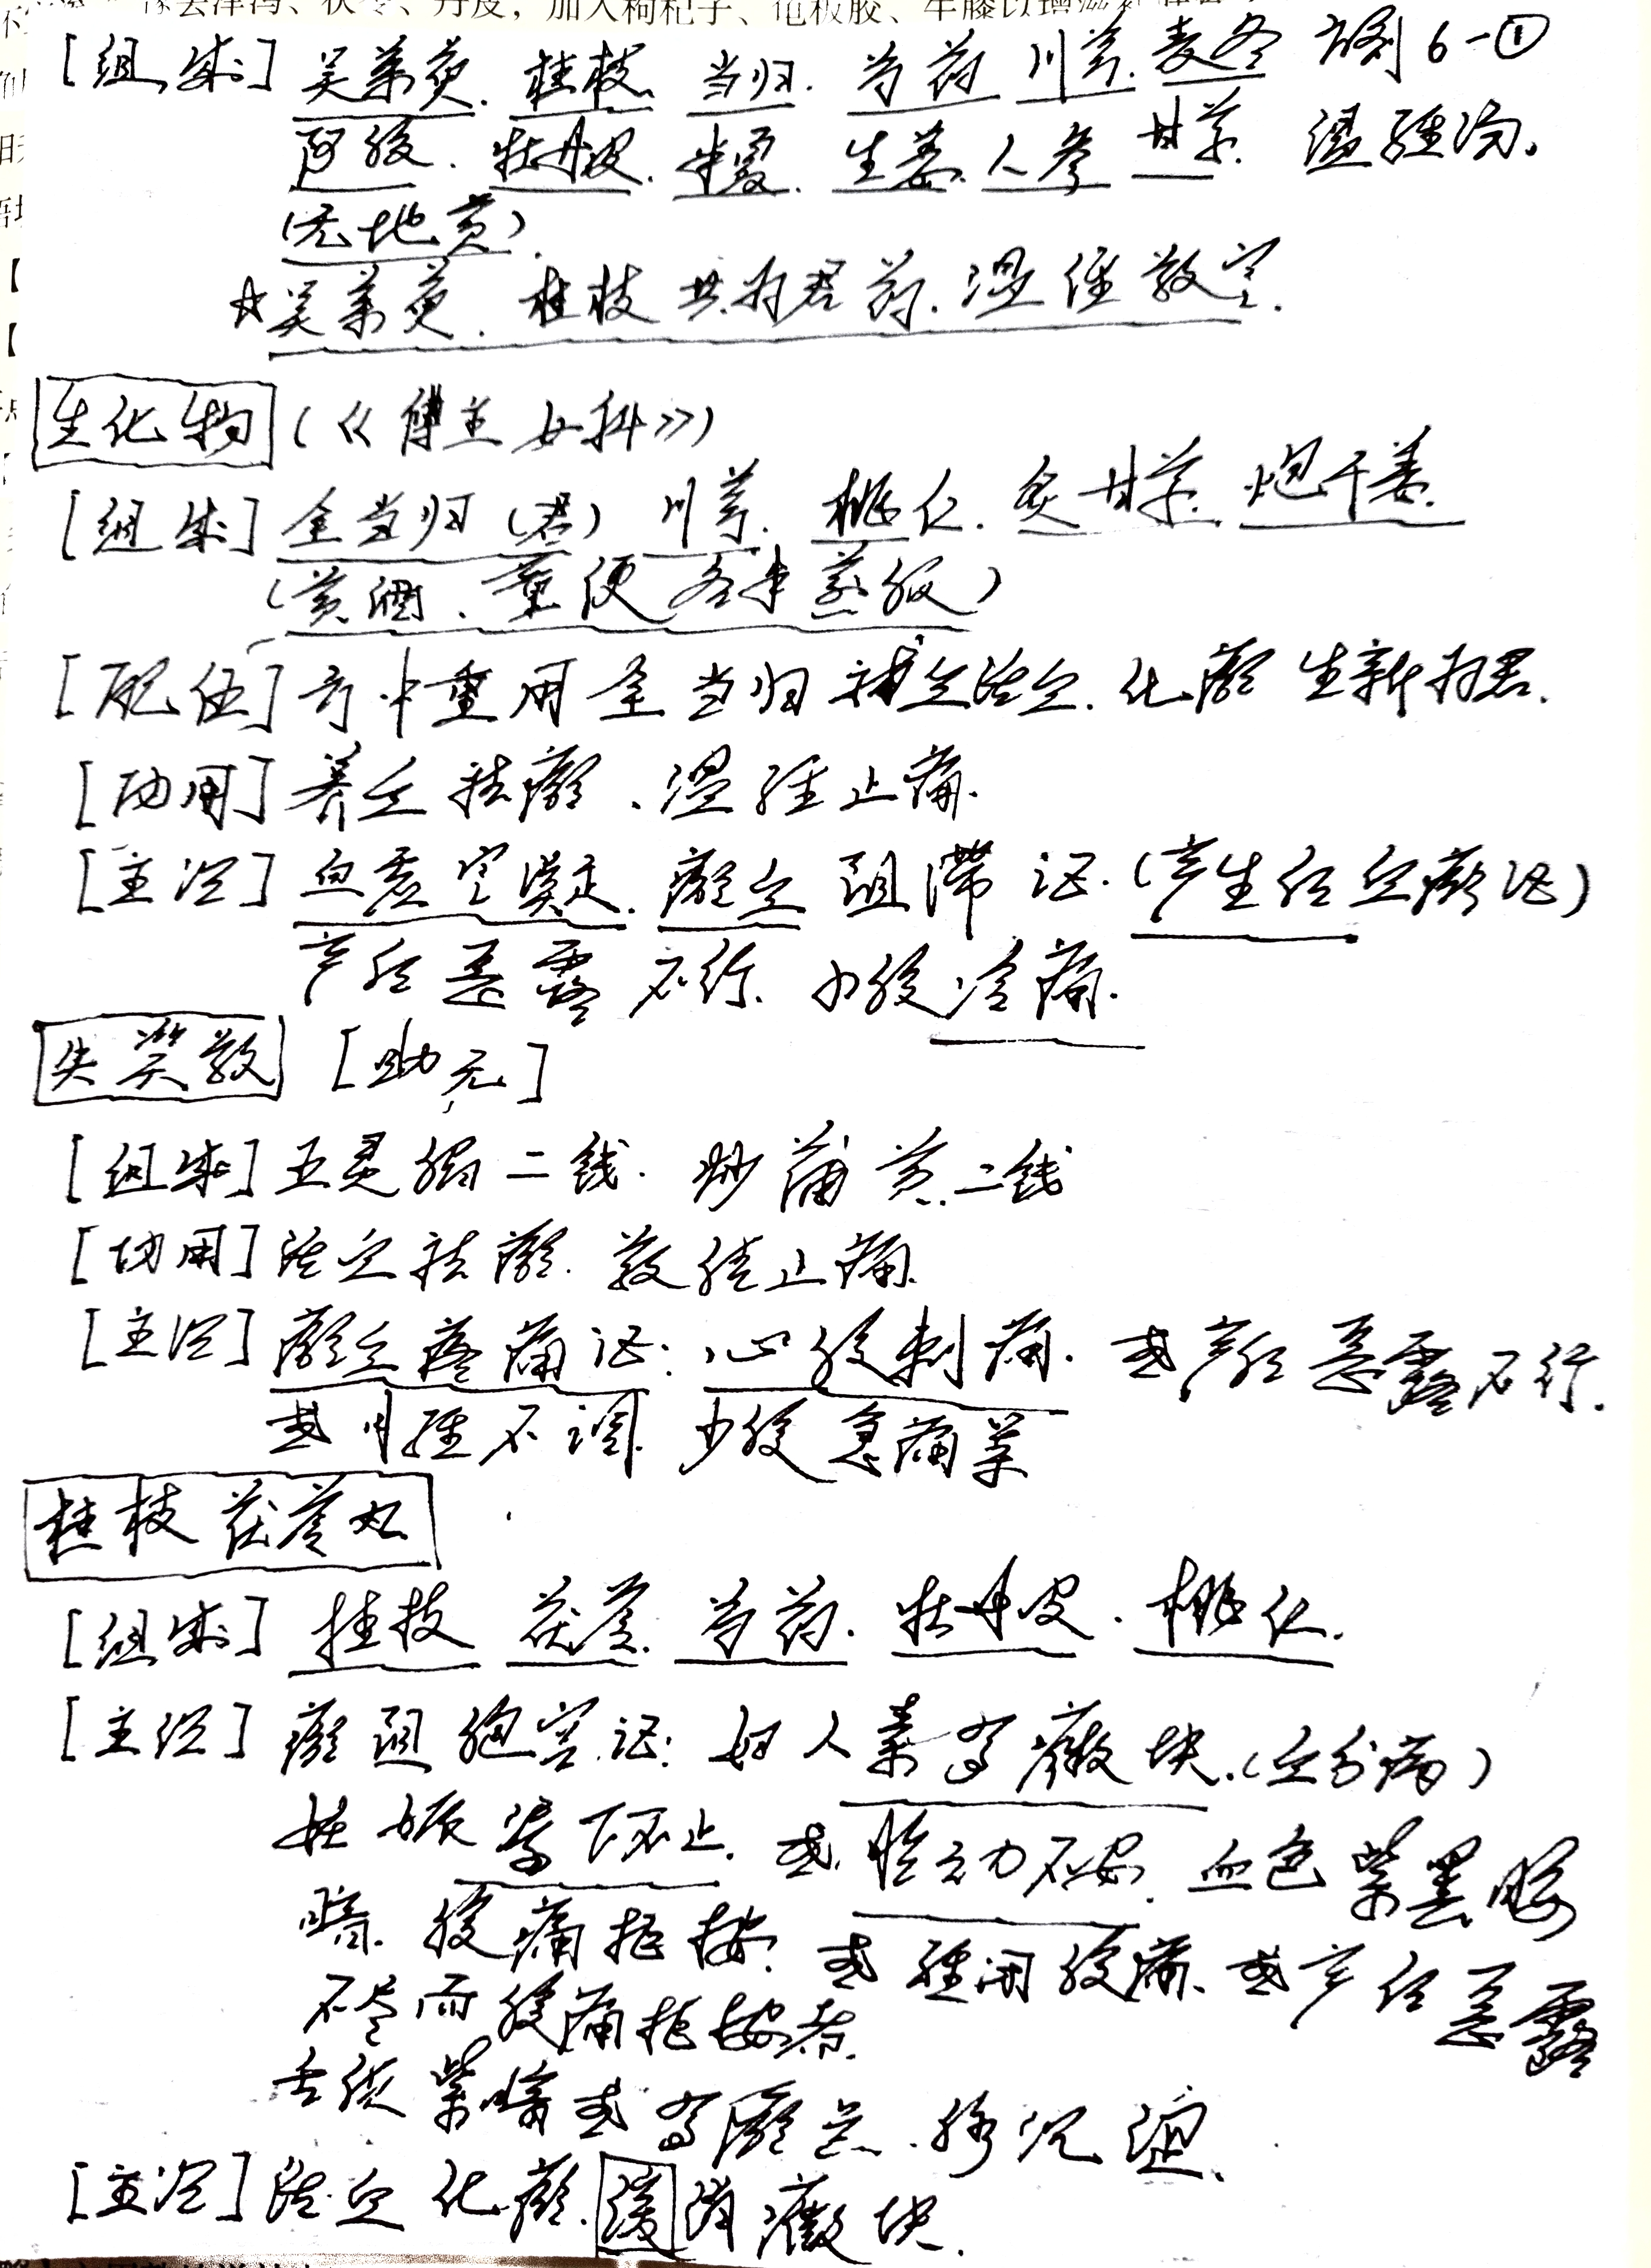 加入枸杞子、龟板胶、牛膝以增滋补
[组成] 吴茱萸. 桂枝. 当归. 芍药 川芎. 麦冬 方剂6-①
阿胶. 牡丹皮. 半夏. 生姜. 人参 甘草. 温经汤.
(无地黄)
☆吴茱萸. 桂枝共为君药. 温经散寒.
生化物 (《傅主女科》)
[组成] 全当归(君) 川芎. 桃仁. 炙甘草. 炮干姜.
(黄酒、童便各半蒸服)
[配伍] 方中重用全当归补血活血. 化瘀生新为君.
[功用] 养血祛瘀、温经止痛.
[主治] 血虚寒凝. 瘀血阻滞证. (产生后血瘀证)
产后恶露不行. 小腹冷痛.
失笑散 [助元]
[组成] 五灵脂二钱. 炒蒲黄.二钱
[功用] 活血祛瘀. 散结止痛.
[主治] 瘀血疼痛证: 心腹刺痛. 或产后恶露不行.
或月经不调. 少腹急痛等
桂枝茯苓丸
[组成] 桂枝 茯苓. 芍药. 牡丹皮. 桃仁.
[主治] 瘀阻胞宫证: 妇人素有癥块. (血分病)
妊娠漏下不止. 或胎动不安. 血色紫黑晦
暗. 腹痛拒按. 或经闭腹痛. 或产后恶露
不尽而腹痛拒按者.
舌质紫暗或有瘀点. 脉沉涩.
[主治] 活血化瘀. 缓消癥块.